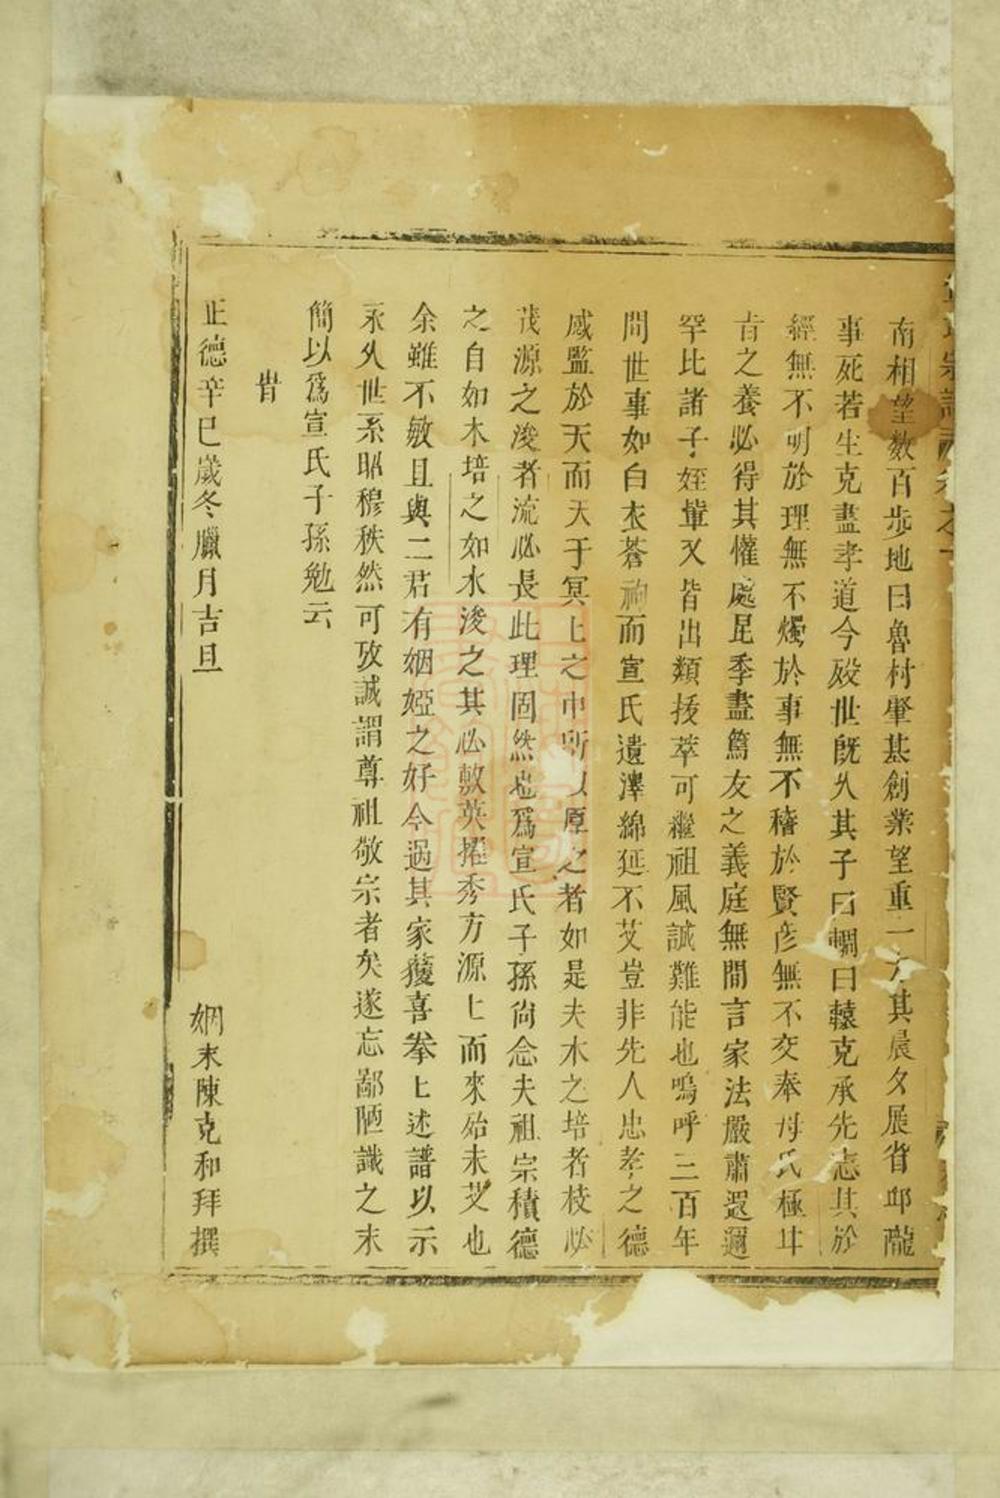 南相望数百步地曰魯村肇基創業望重一方其晨夕展省邱隴
事死若生克盡孝道今歿世旣久其子曰輖曰轅克承先志其於
經無不明於理無不燭於事無不稽於賢彦無不交奉母氏極甘
旨之養必得其懽處昆季盡篤友之義庭無間言家法嚴肅遐邇
罕比諸子姪輩又皆出類拔萃可繼祖風誠難能也嗚呼三百年
間世事如白衣蒼狗而宣氏遺澤綿延不艾豈非先人忠孝之德
感監於天而天于冥上之中所以厚之者如是夫木之培者枝必
茂源之浚者流必長此理固然也爲宣氏子孫尙念夫祖宗積德
之自如木培之如水浚之其必敷英擢秀方源上而來殆未艾也
余雖不敏且與二君有姻婭之好今過其家獲喜拳上述譜以示
永久世系昭穆秩然可攷誠謂尊祖敬宗者矣遂忘鄙陋識之末
簡以爲宣氏子孫勉云
旹
正德辛巳歲冬臘月吉旦
姻末陳克和拜撰